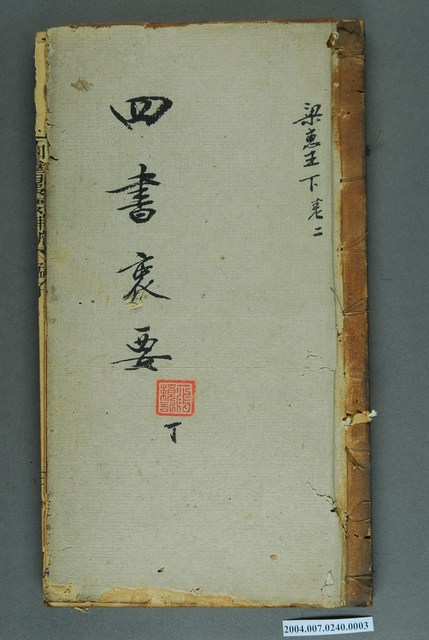 梁惠王下卷二
四書裒要
丁
2004.007.0240.0003